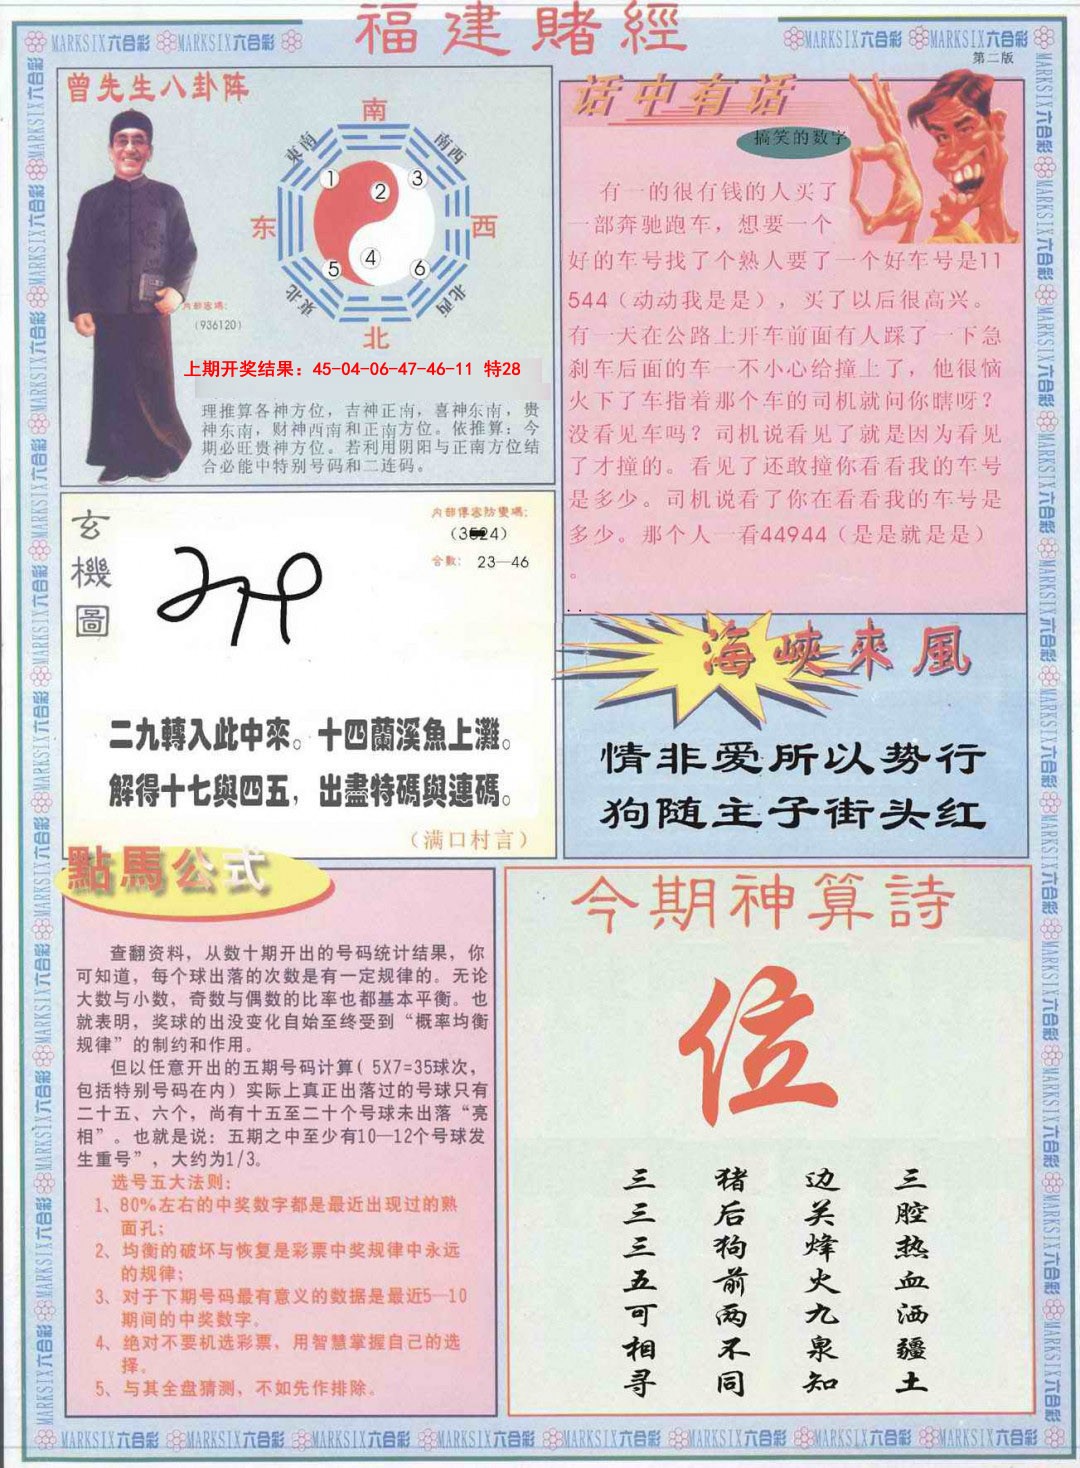 福建賭經
MARKSIX六合彩 MARKSIX六合彩
MARKSIX六合彩 MARKSIX六合彩
第二版
曾先生八卦阵
南
東南
南西
①
②
③
东
西
④
⑤
⑥
東北
北西
北
(936120)
上期开奖结果：45-04-06-47-46-11 特28
理推算各神方位，吉神正南，喜神东南，贵
神东南，财神西南和正南方位。依推算：今
期必旺贵神方位。若利用阴阳与正南方位结
合必能中特别号码和二连码。
话中有话
搞笑的数字
有一的很有钱的人买了
一部奔驰跑车，想要一个
好的车号找了个熟人要了一个好车号是11
544（动动我是是），买了以后很高兴。
有一天在公路上开车前面有人踩了一下急
刹车后面的车一不小心给撞上了，他很恼
火下了车指着那个车的司机就问你瞎呀？
没看见车吗？司机说看见了就是因为看见
了才撞的。看见了还敢撞你看看我的车号
是多少。司机说看了你在看看我的车号是
多少。那个人一看44944（是是就是是）
。
玄機圖
合數： 23—46
二九轉入此中來。十四蘭溪魚上灘。
解得十七與四五，出盡特碼與連碼。
（满口村言）
海峽來風
情非爱所以势行
狗随主子街头红
點馬公式
查翻资料，从数十期开出的号码统计结果，你
可知道，每个球出落的次数是有一定规律的。无论
大数与小数，奇数与偶数的比率也都基本平衡。也
就表明，奖球的出没变化自始至终受到“概率均衡
规律”的制约和作用。
但以任意开出的五期号码计算( 5X7=35球次，
包括特别号码在内）实际上真正出落过的号球只有
二十五、六个，尚有十五至二十个号球未出落“亮
相”。也就是说：五期之中至少有10—12个号球发
生重号”，大约为1/3。
选号五大法则：
1、80%左右的中奖数字都是最近出现过的熟
面孔；
2、均衡的破坏与恢复是彩票中奖规律中永远
的规律；
3、对于下期号码最有意义的数据是最近5—10
期间的中奖数字。
4、绝对不要机选彩票，用智慧掌握自己的选
择。
5、与其全盘猜测，不如先作排除。
今期神算詩
位
三 猪 边 三
三 后 关 腔
三 狗 烽 热
五 前 火 血
可 两 九 洒
相 不 泉 疆
寻 同 知 土
MARKSIX六合彩 MARKSIX六合彩 MARKSIX六合彩 MARKSIX六合彩 MARKSIX六合彩 MARKSIX六合彩 MARKSIX六合彩 MARKSIX六合彩